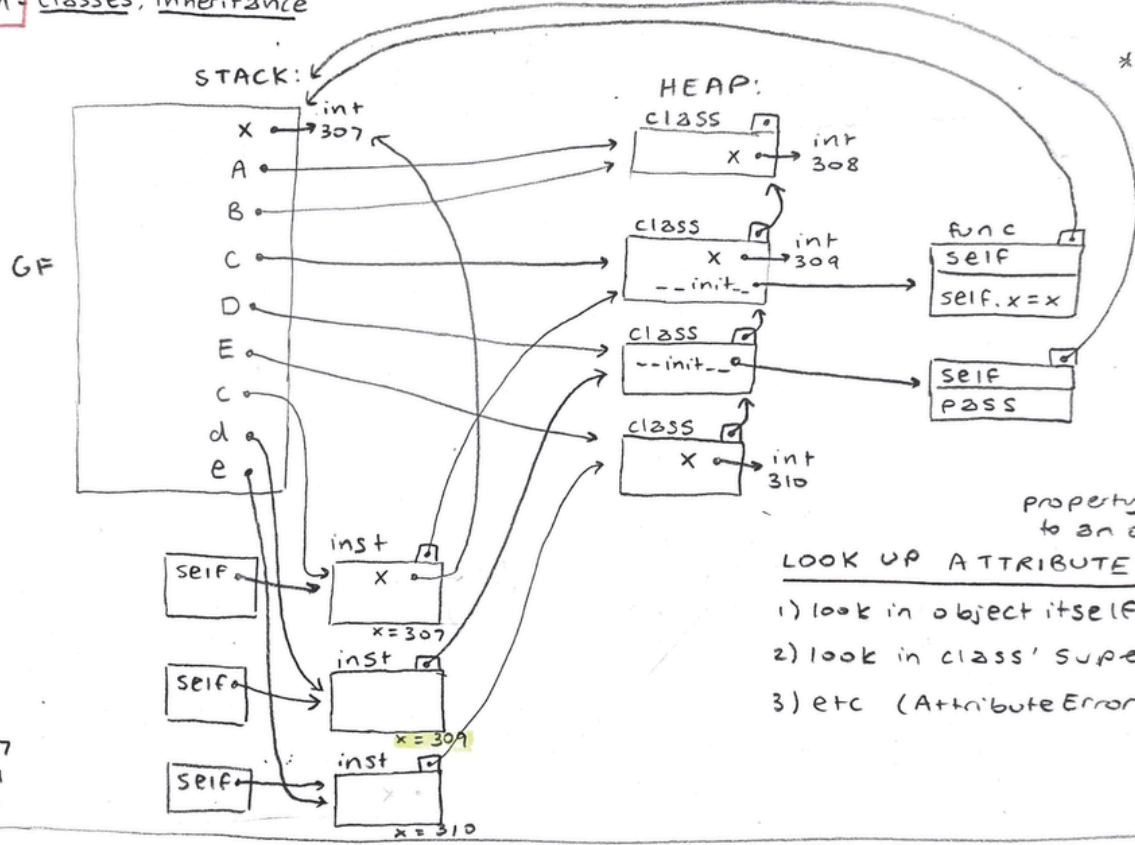 Classes, Inheritance
STACK:
int
x 307
A
B
C
D
E
c
d
e
GF
HEAP:
class
x int
308
class
x int
309
__init__
class
__init__
class
x int
310
func
self
self.x = x
self
pass
*
inst
self
x
x = 307
inst
self
x = 309
inst
self
x
x = 310
property
to an
LOOK UP ATTRIBUTE
1) look in object itself
2) look in class' supe
3) etc (AttributeError
7